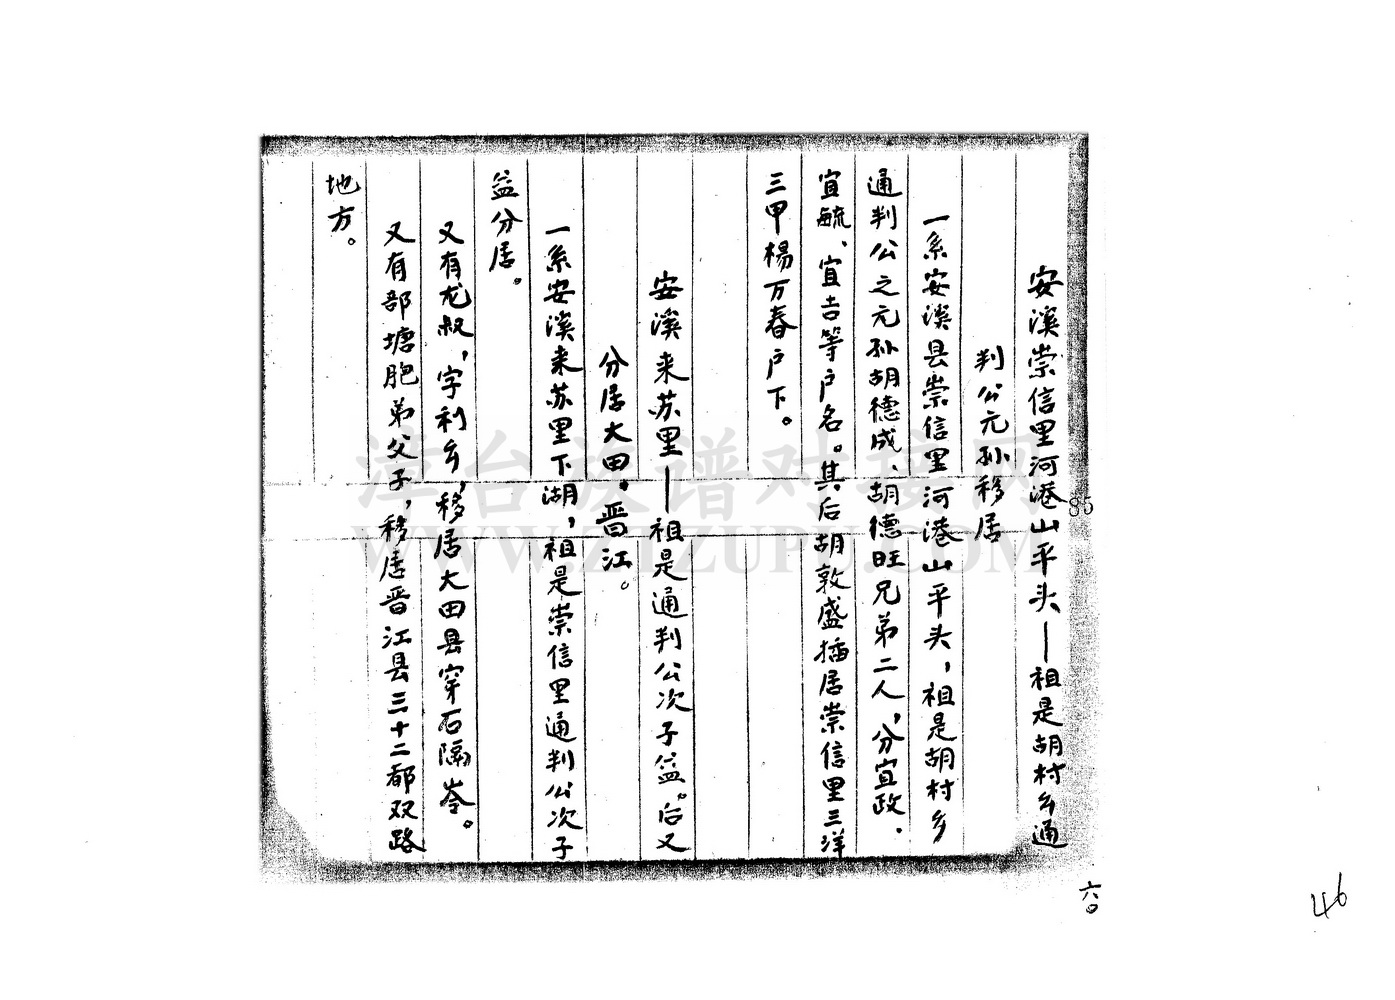 安溪崇信里河港山平头——祖是胡村乡通
判公元孙移居
一系安溪县崇信里河港山平头，祖是胡村乡
通判公之元孙胡德成、胡德旺兄弟二人，分宜政、
宜毓、宜吉等户名。其后胡敦盛插居崇信里三洋
三甲楊万春户下。
安溪来苏里——祖是通判公次子益。后又
分居大田，晋江。
一系安溪来苏里下湖，祖是崇信里通判公次子
益分居。
又有龙叔，字利乡，移居大田县穿石隔岺。
又有部塘胞弟父子，移居晋江县三十二都双路
地方。
85
六〇
46
漳台族谱对接网
WWW.ZTZUPU.COM